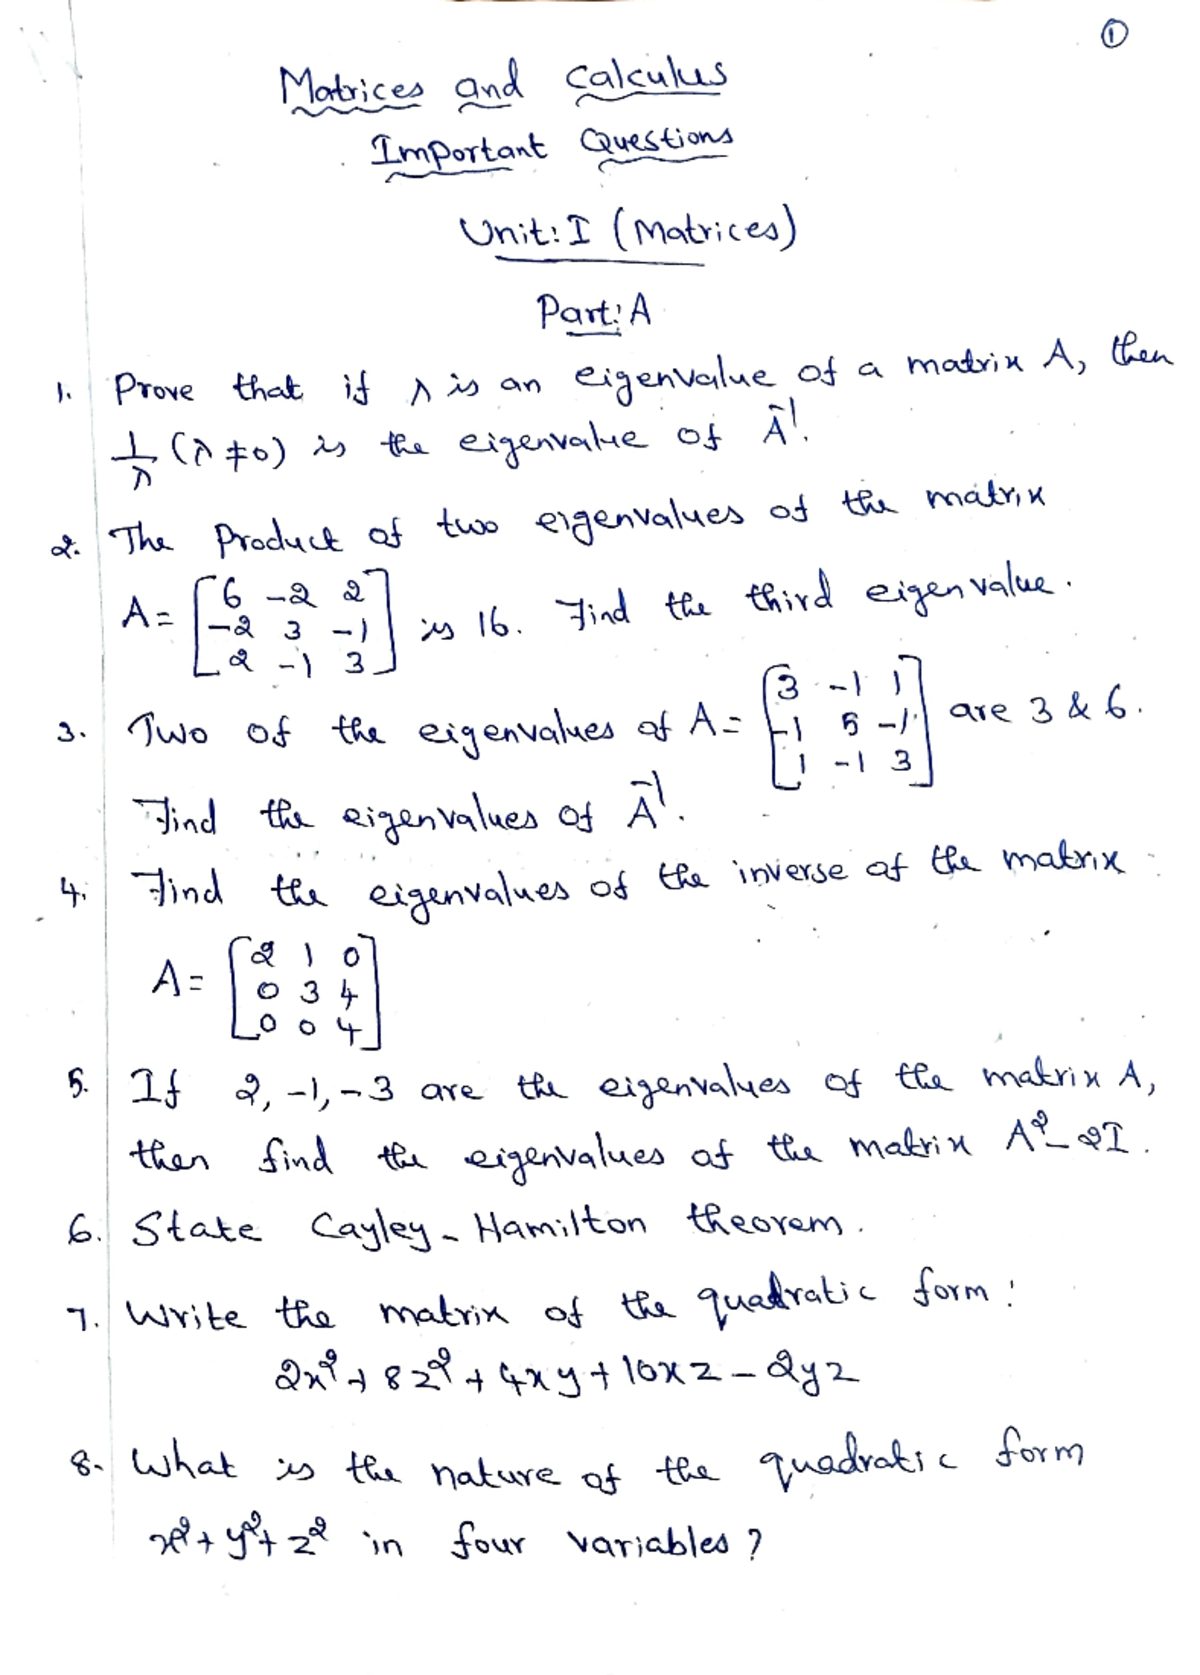 ①
Matrices and Calculus
Important Questions
Unit: I (Matrices)
Part: A
1. Prove that if λ is an eigenvalue of a matrix A, then
1/λ (λ ≠ 0) is the eigenvalue of A⁻¹.
2. The Product of two eigenvalues of the matrix
A = [6 -2 2
-2 3 -1
2 -1 3] is 16. Find the third eigenvalue.
3. Two of the eigenvalues of A = [3 -1 1
-1 5 -1
1 -1 3] are 3 & 6.
Find the eigenvalues of A⁻¹.
4. Find the eigenvalues of the inverse of the matrix :
A = [2 1 0
0 3 4
0 0 4]
5. If 2, -1, -3 are the eigenvalues of the matrix A,
then find the eigenvalues of the matrix A² - 2I.
6. State Cayley-Hamilton theorem.
7. Write the matrix of the quadratic form :
2x² + 8z² + 4xy + 10xz - 2yz
8. What is the nature of the quadratic form
x² + y² + z² in four variables ?